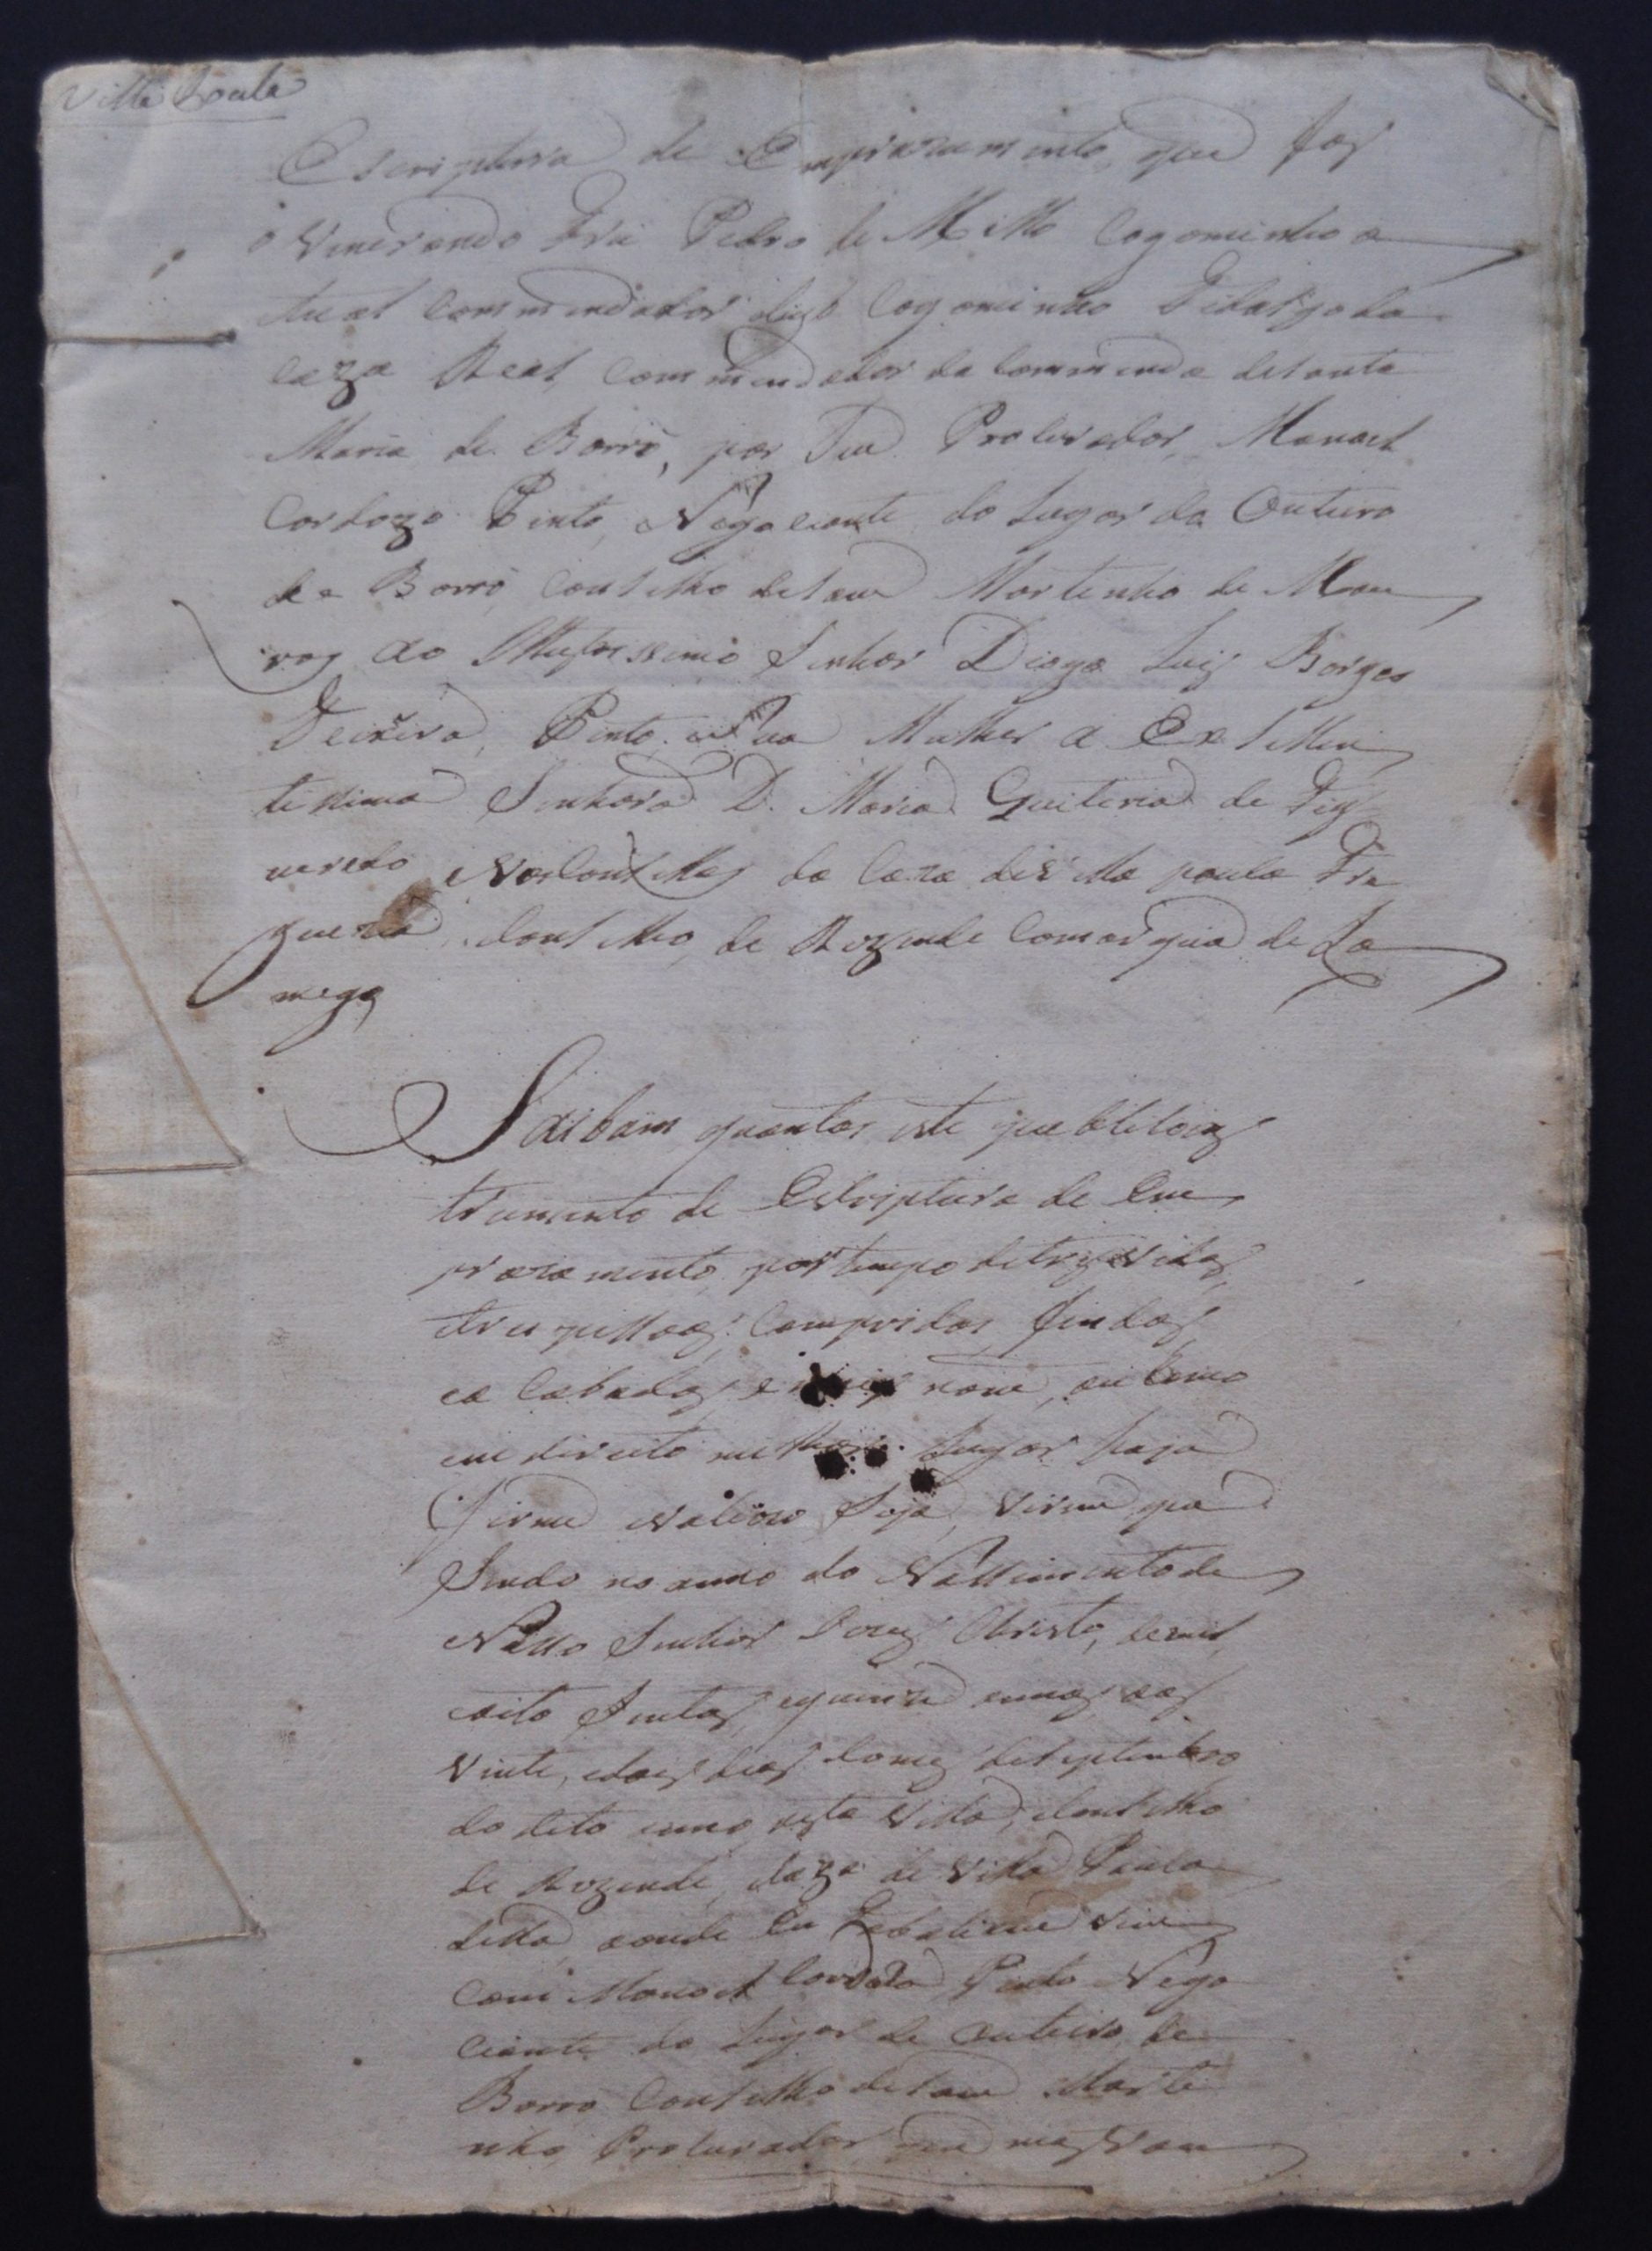 Villa Paula
Escriptura de Emprazamento, que fas
o Venerando Frei Pedro de Mello Cogominho a
tual Commendador digo Cogominho Fidalgo da
caza Real, Commendador da Commenda de Santa
Maria de Barrô, por Seu Procurador, Manoel
Cardozo Pinto, Negociante do Lugar do Outeiro
de Barrô, Conselho de Sam Martinho de Mou
ros ao Illustrissimo Senhor Diogo Luis Borges
Teixeira, Pinto, e Sua Mulher a Excellen
tissima Senhora D. Maria Quiteria de Fig
ueiredo Vasconcellos da Caza de Villa paula Fre
guezia, Conselho, de Rezende Comarqua de La
mego
Saibam quantos este publico ins
trumento de Escriptura de Em
prazamento, por tempo de tres vidas,
tres pessoas, Compridas, findas,
ea Cabadas, e nam, ou Como
em direito milhor Lugar haja
firme valiozo, Seja, virem que
Sendo no anno do Nassimento de
Nosso Senhor Jezus Christo, de mil
oito Sentos, equinze annos aos
vinte, edois dias do mes de Septembro
do dito anno, nesta Villa, Conselho
de Rezende, Caza de Villa Paula
della, aonde Eu Tabaliam vim
Com Manoel Cardozo Pinto Nego
ciante do Lugar de Outeiro, de
Barrô Conselho de Sam Marti
nho, Procurador, que mostrou